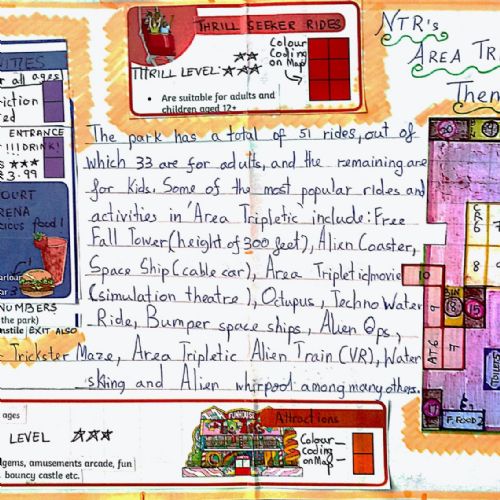 THRILL SEEKER RIDES
THRILL LEVEL:
Colour
Coding
on Map
• Are suitable for adults and
children aged 12+
NTR's
AREA TRI
Them
NITIES
r all ages
riction
red
ENTRANCE
!!!DRINK!
3.99
OURT
RENA
food!
NUMBERS
the park)
nstile EXIT ALSO
The park has a total of 51 rides, out of
which 33 are for adults, and the remaining are
for kids. Some of the most popular rides and
activities in 'Area Tripletic' include: Free
Fall Tower (height of 300 feet), Alien Coaster,
Space Ship (cable car), Area Tripletic movie
(simulation theatre), Octupus, Techno Water
Ride, Bumper space ships, Alien Ops,
Trickster Maze, Area Tripletic Alien Train (VR), Water
skiing and Alien whirpool among many others.
6 7
8
10
9
7
18
15
17
F. FOOD 2
TOILETS
ages
LEVEL
dgems, amusements arcade, fun
bouncy castle etc.
FUNHOUSE
Attractions
Colour
coding
on Map